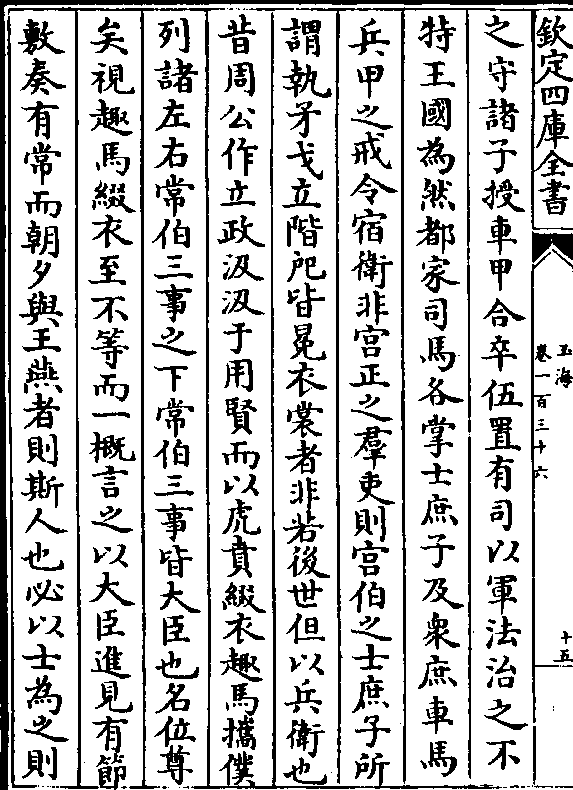 欽定四庫全書
玉海
卷一百三十六
十五
之守諸子授車甲合卒伍置有司以軍法治之不
特王國為然都家司馬各掌士庶子及衆庶車馬
兵甲之戒令宿衛非宫正之羣吏則宫伯之士庶子所
謂執矛戈立階戺皆冕衣裳者非若後世但以兵衛也
昔周公作立政汲汲于用賢而以虎賁綴衣趣馬攜僕
列諸左右常伯三事之下常伯三事皆大臣也名位尊
矣視趣馬綴衣至不等而一概言之以大臣進見有節
敷奏有常而朝夕與王燕者則斯人也必以士為之則